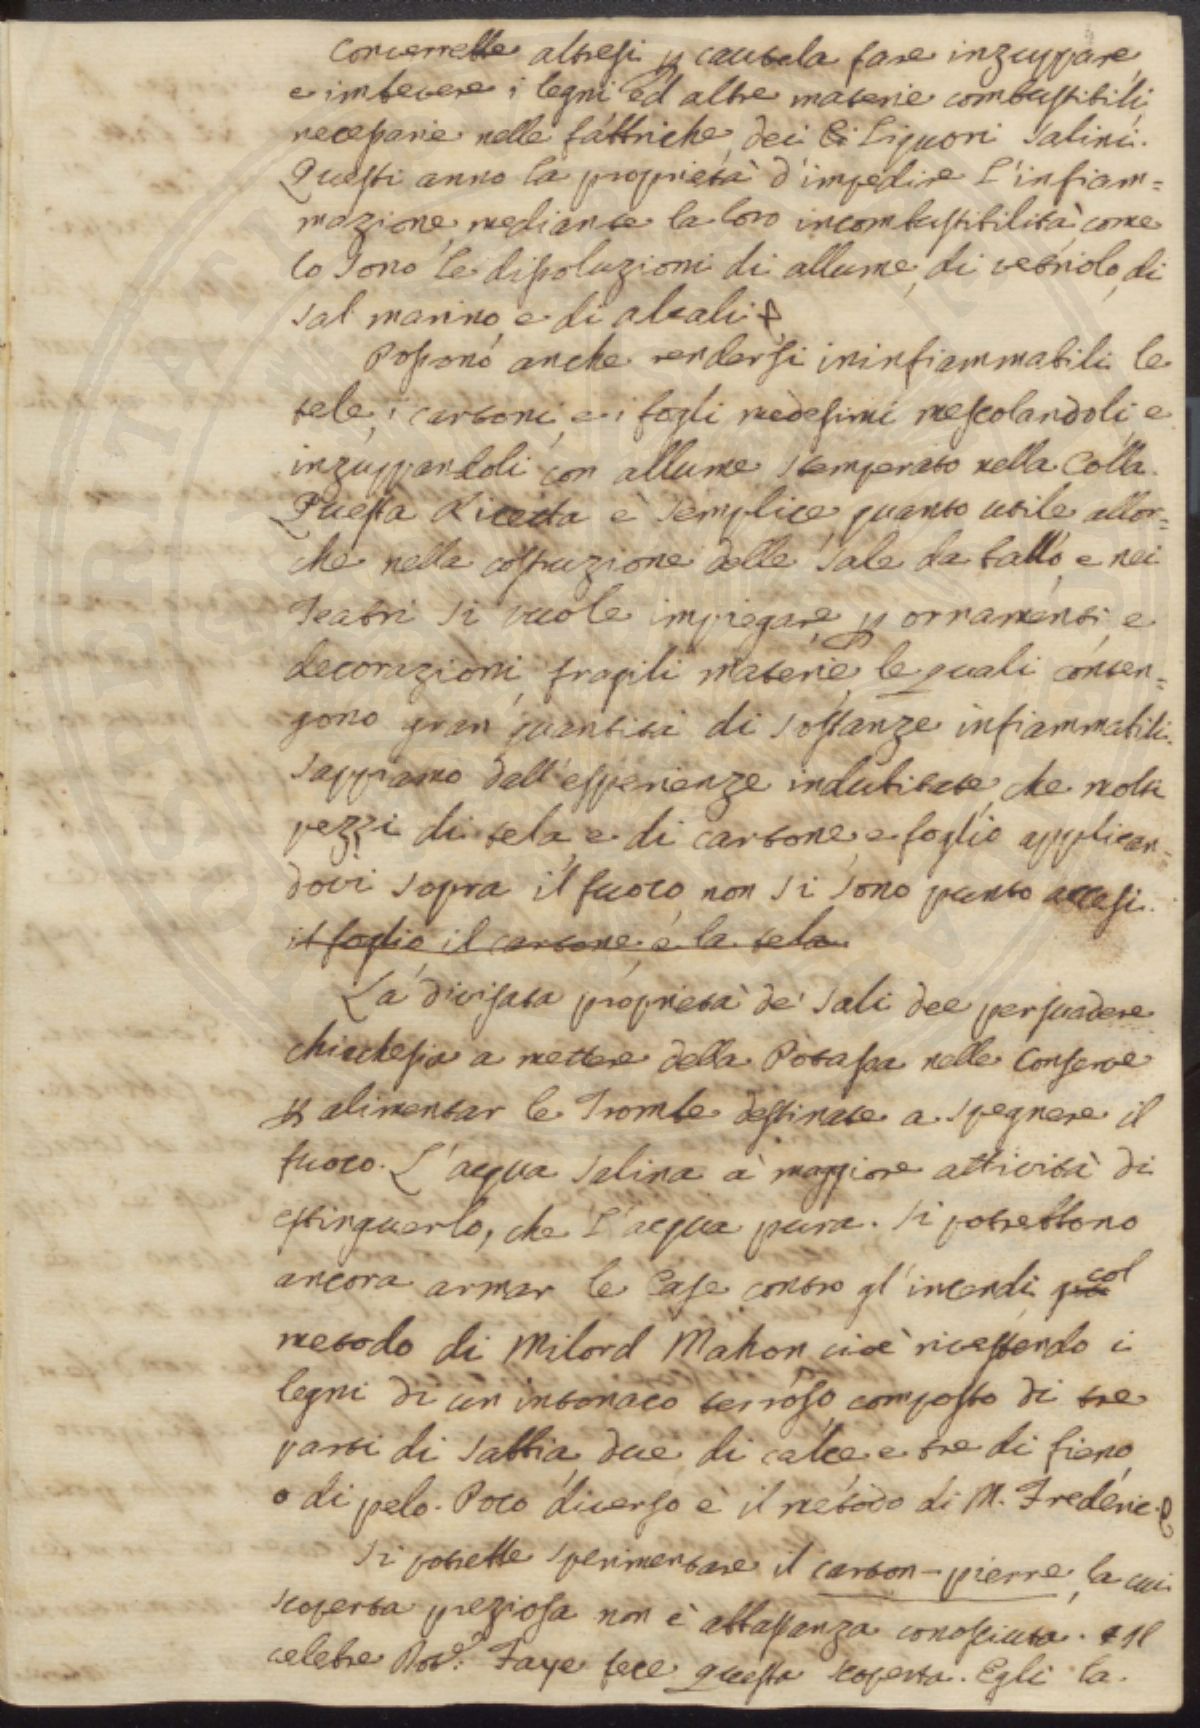 Converrebbe altresi p cautela fare inzuppare
e imbevere i legni ed altre materie combustibili,
necessarie nelle fabbriche, dei Liquori salini.
Questi anno la proprietà d'impedire l'infiam=
mazione, mediante la loro incombustibilità, come
lo sono le dissoluzioni di allume, di vetriolo, di
sal marino e di alcali
Possono anche rendersi ininfiammabili le
tele, i cartoni, e i fogli medesimi mescolandoli e
inzuppandoli con allume stemperato nella Colla.
Questa Ricetta e semplice quanto utile allor=
che nella costruzione delle sale da ballo, e nei
Teatri si vuole impiegare p ornamenti, e
decorazioni, fragili materie, le quali conten=
gono gran quantità di sostanze infiammabili.
Sappiamo dall'esperienze indubitate, che molti
pezzi di tela e di cartone e foglio applican=
dovi sopra il fuoco non si sono punto accesi.
il foglio, il cartone, e la tela.
La divisata proprietà de' sali dee persuadere
chicchesia a mettere della Potassa nelle Conserve
p alimentar le Trombe destinate a spegnere il
fuoco. L'acqua salina à maggiore attività di
estinguerlo, che l'acqua pura. Si potrebbono
ancora armar le Case contro gl'incendi col
metodo di Milord Mahon cioè rivestendo i
legni di un intonaco terroso composto di tre
parti di sabbia, due di calce, e tre di fieno,
o di pelo. Poco diverso è il metodo di M. Frederic.
Si potrebbe sperimentare il carton-pierre, la cui
scoperta preziosa non è abbastanza conosciuta. Il
celebre Dot.e Faye fece questa scoperta. Egli la